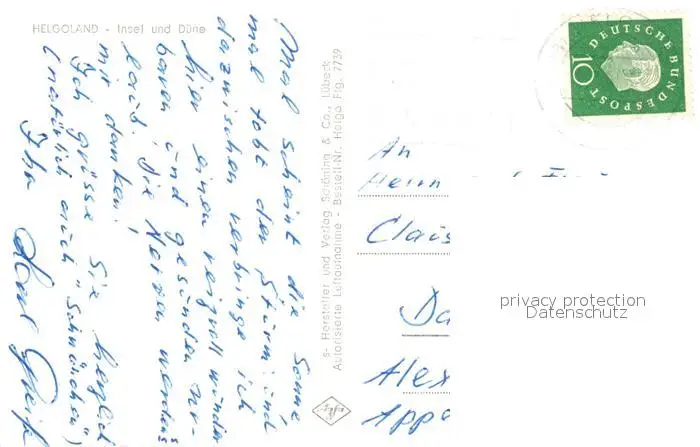 HELGOLAND - Insel und Düne
Mal scheint die Sonne,
mal tobt der Sturm und
dazwischen verbringe ich
hier einen reizvoll wunder-
baren und gesunden Ur-
laub. Die Nerven werdens
mir danken!
Ich grüsse Sie herzlich
(natürlich auch "Schnäuzchen")
Ihr
s- Hersteller und Verlag Schöning & Co., Lübeck
Autorisierte Luftaufnahme - Bestell-Nr. Helgo Flg. 7739
DEUTSCHE BUNDESPOST
10
An
Herrn
Claus
Da
Alex
Appa
privacy protection
Datenschutz